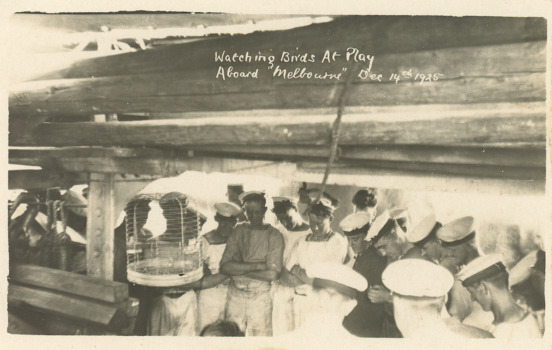 Watching Birds At Play
Aboard "Melbourne" Dec 14th 1925